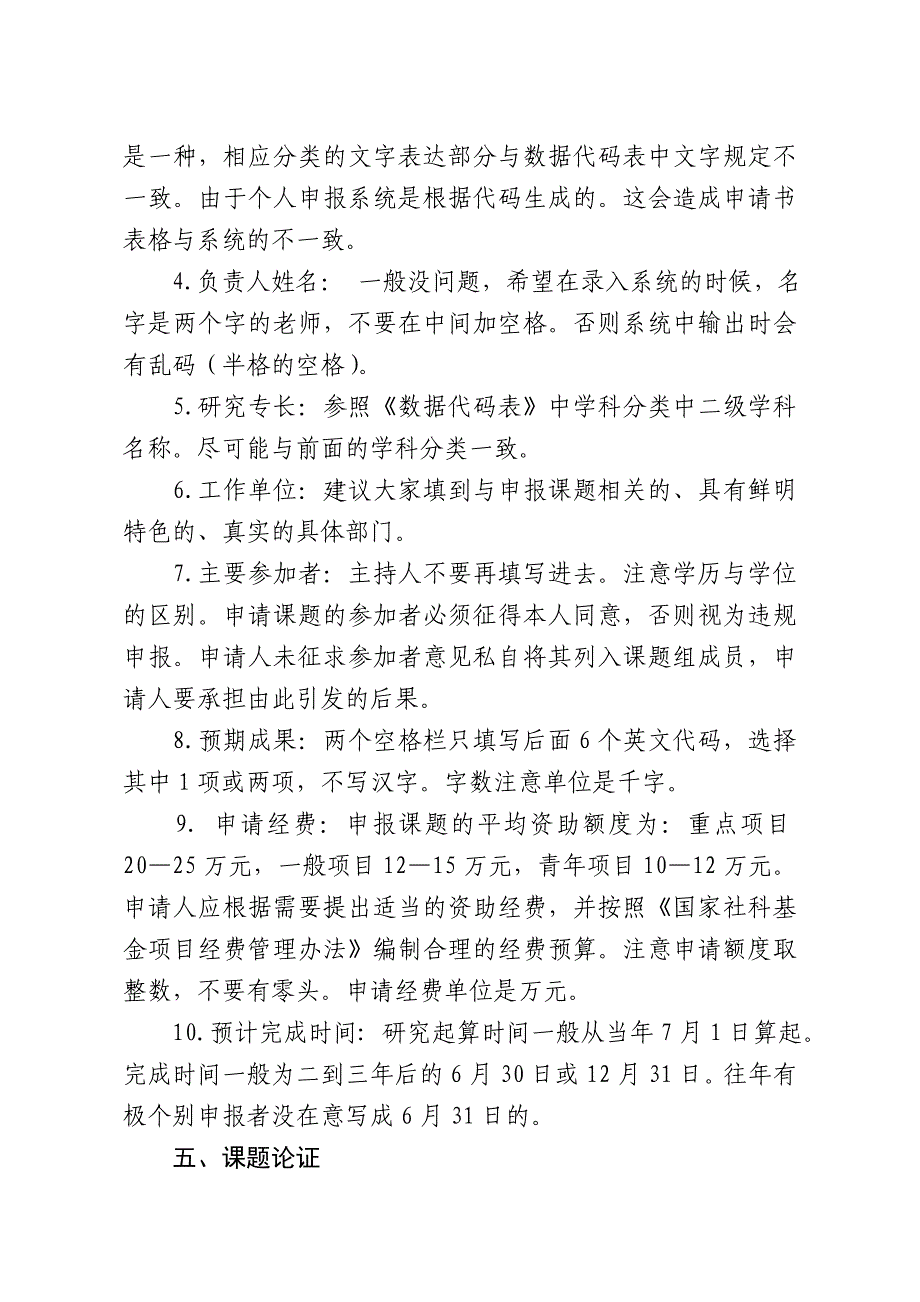 是一种，相应分类的文字表达部分与数据代码表中文字规定不
一致。由于个人申报系统是根据代码生成的。这会造成申请书
表格与系统的不一致。
4.负责人姓名： 一般没问题，希望在录入系统的时候，名
字是两个字的老师，不要在中间加空格。否则系统中输出时会
有乱码（半格的空格）。
5.研究专长：参照《数据代码表》中学科分类中二级学科
名称。尽可能与前面的学科分类一致。
6.工作单位：建议大家填到与申报课题相关的、具有鲜明
特色的、真实的具体部门。
7.主要参加者：主持人不要再填写进去。注意学历与学位
的区别。申请课题的参加者必须征得本人同意，否则视为违规
申报。申请人未征求参加者意见私自将其列入课题组成员，申
请人要承担由此引发的后果。
8.预期成果：两个空格栏只填写后面 6 个英文代码，选择
其中 1 项或两项，不写汉字。字数注意单位是千字。
9. 申请经费：申报课题的平均资助额度为：重点项目
20—25 万元，一般项目 12—15 万元，青年项目 10—12 万元。
申请人应根据需要提出适当的资助经费，并按照《国家社科基
金项目经费管理办法》编制合理的经费预算。注意申请额度取
整数，不要有零头。申请经费单位是万元。
10.预计完成时间：研究起算时间一般从当年 7 月 1 日算起。
完成时间一般为二到三年后的 6 月 30 日或 12 月 31 日。往年有
极个别申报者没在意写成 6 月 31 日的。
五、课题论证